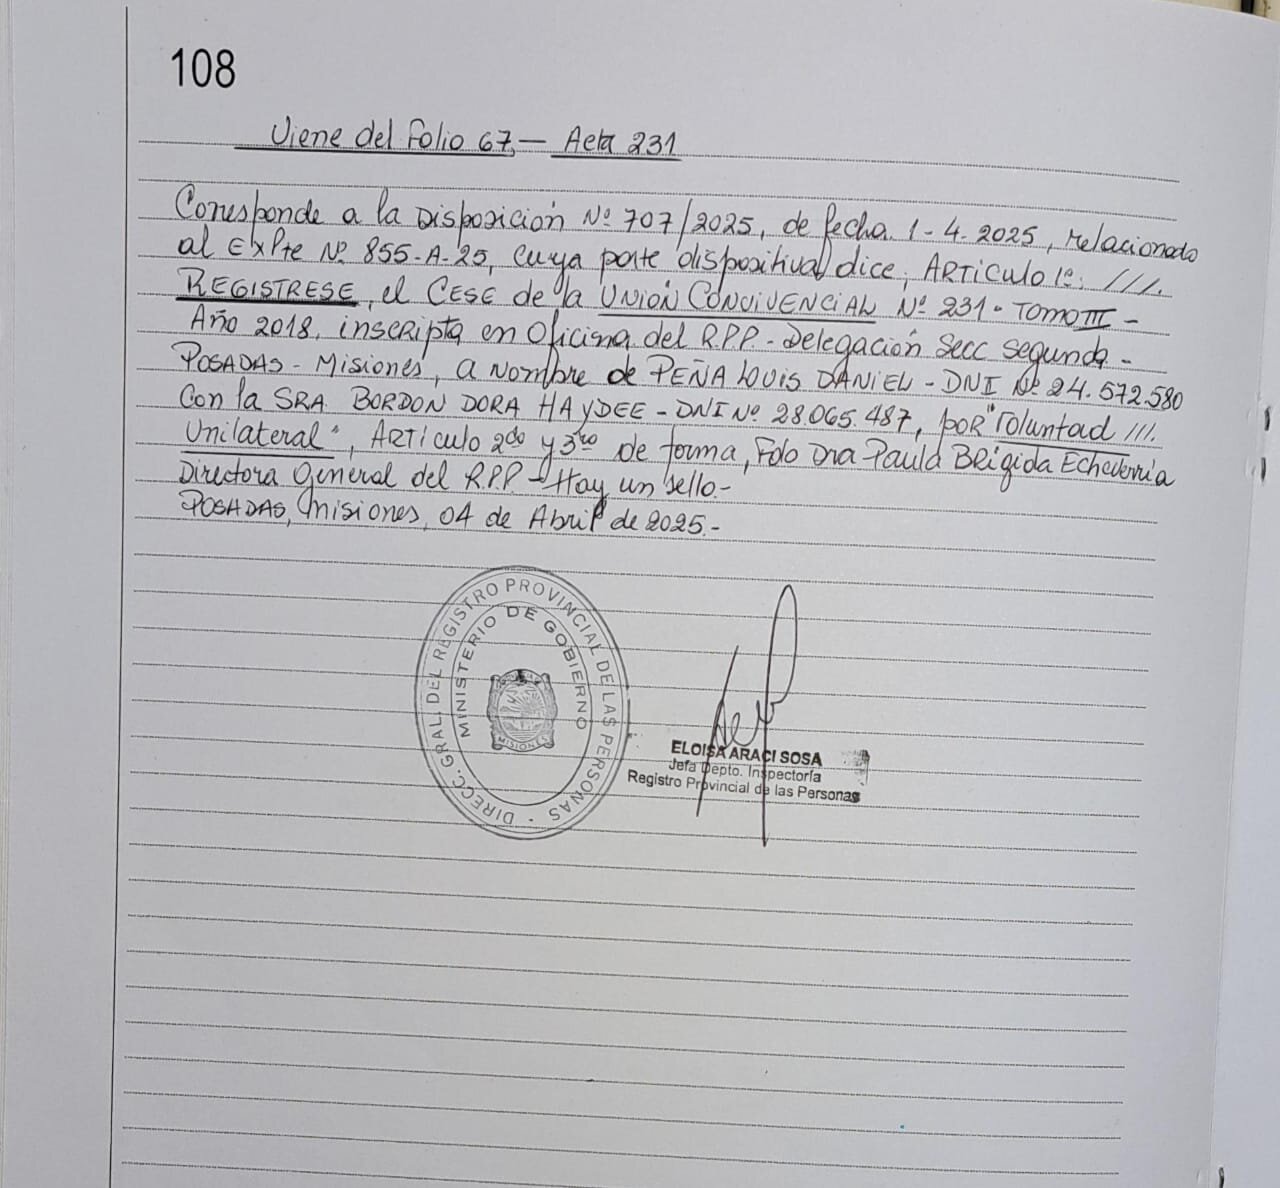 108
Viene del Folio 67,- Acta 231
Corresponde a la Disposición Nº 707/2025, de fecha 1-4-2025, relacionado
al Expte Nº 855-A-25, cuya parte dispositiva dice, ARTICULO 1º: ///.
REGISTRESE, el CESE de la UNIÓN CONVIVENCIAL Nº 231- TOMO III -
Año 2018, inscripta en Oficina del R.P.P - Delegación Secc Segunda -
POSADAS - Misiones, a Nombre de PEÑA LOUIS DANIEL - DNI Nº 24.572.580
Con la SRA BORDON DORA HAYDEE - DNI Nº 28.065.487, por "Voluntad ///.
Unilateral", ARTÍCULO 2do y 3ro de forma, Fdo Dra Paula Brigida Echeverria
Directora General del R.P.P - Hay un sello.-
POSADAS, Misiones, 04 de Abril de 2025.-
DIRECC. GRAL. DEL REGISTRO PROVINCIAL DE LAS PERSONAS -
MINISTERIO DE GOBIERNO
MISIONES
ELOISA ARACI SOSA
Jefa Depto. Inspectoría
Registro Provincial de las Personas